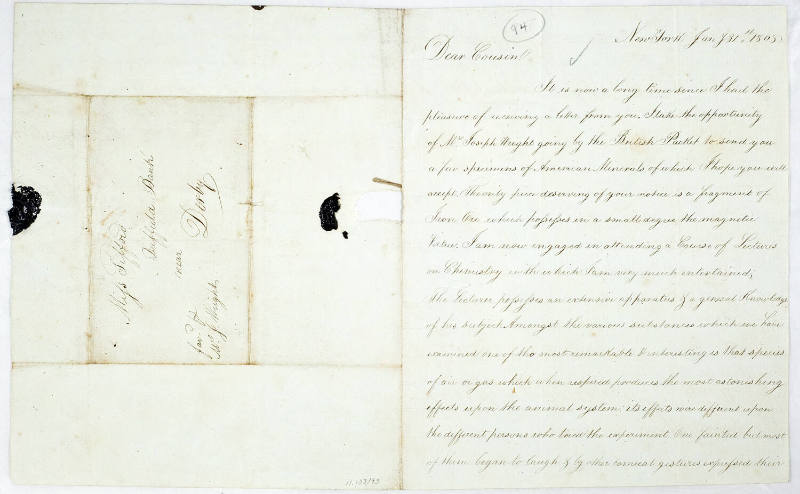 94
New York Jan.y 31st 1805
Dear Cousin
It is now a long time since I had the
pleasure of receiving a letter from you. I take the opportunity
of Mr Joseph Wright going by the British Packet to send you
a few specimens of American Minerals of which I hope you will
accept. The only piece deserving of your notice is a fragment of
Iron Ore which possesses in a small degree the magnetic
Virtue. I am now engaged in attending a Course of Lectures
on Chemistry with which I am very much entertained,
The Lecturer possesses an extensive apparatus & a general Knowledge
of his subject. Amongst the various substances which we have
examined one of the most remarkable & interesting is that species
of air or gas which when respired produces the most astonishing
effects upon the animal system its effects were different upon
the different persons who tried the experiment One fainted but most
of them began to laugh & by other comical gestures expressed their
Miss
Duffield Bank
near
Derby
favd by
Mr J Wright
11.107/93